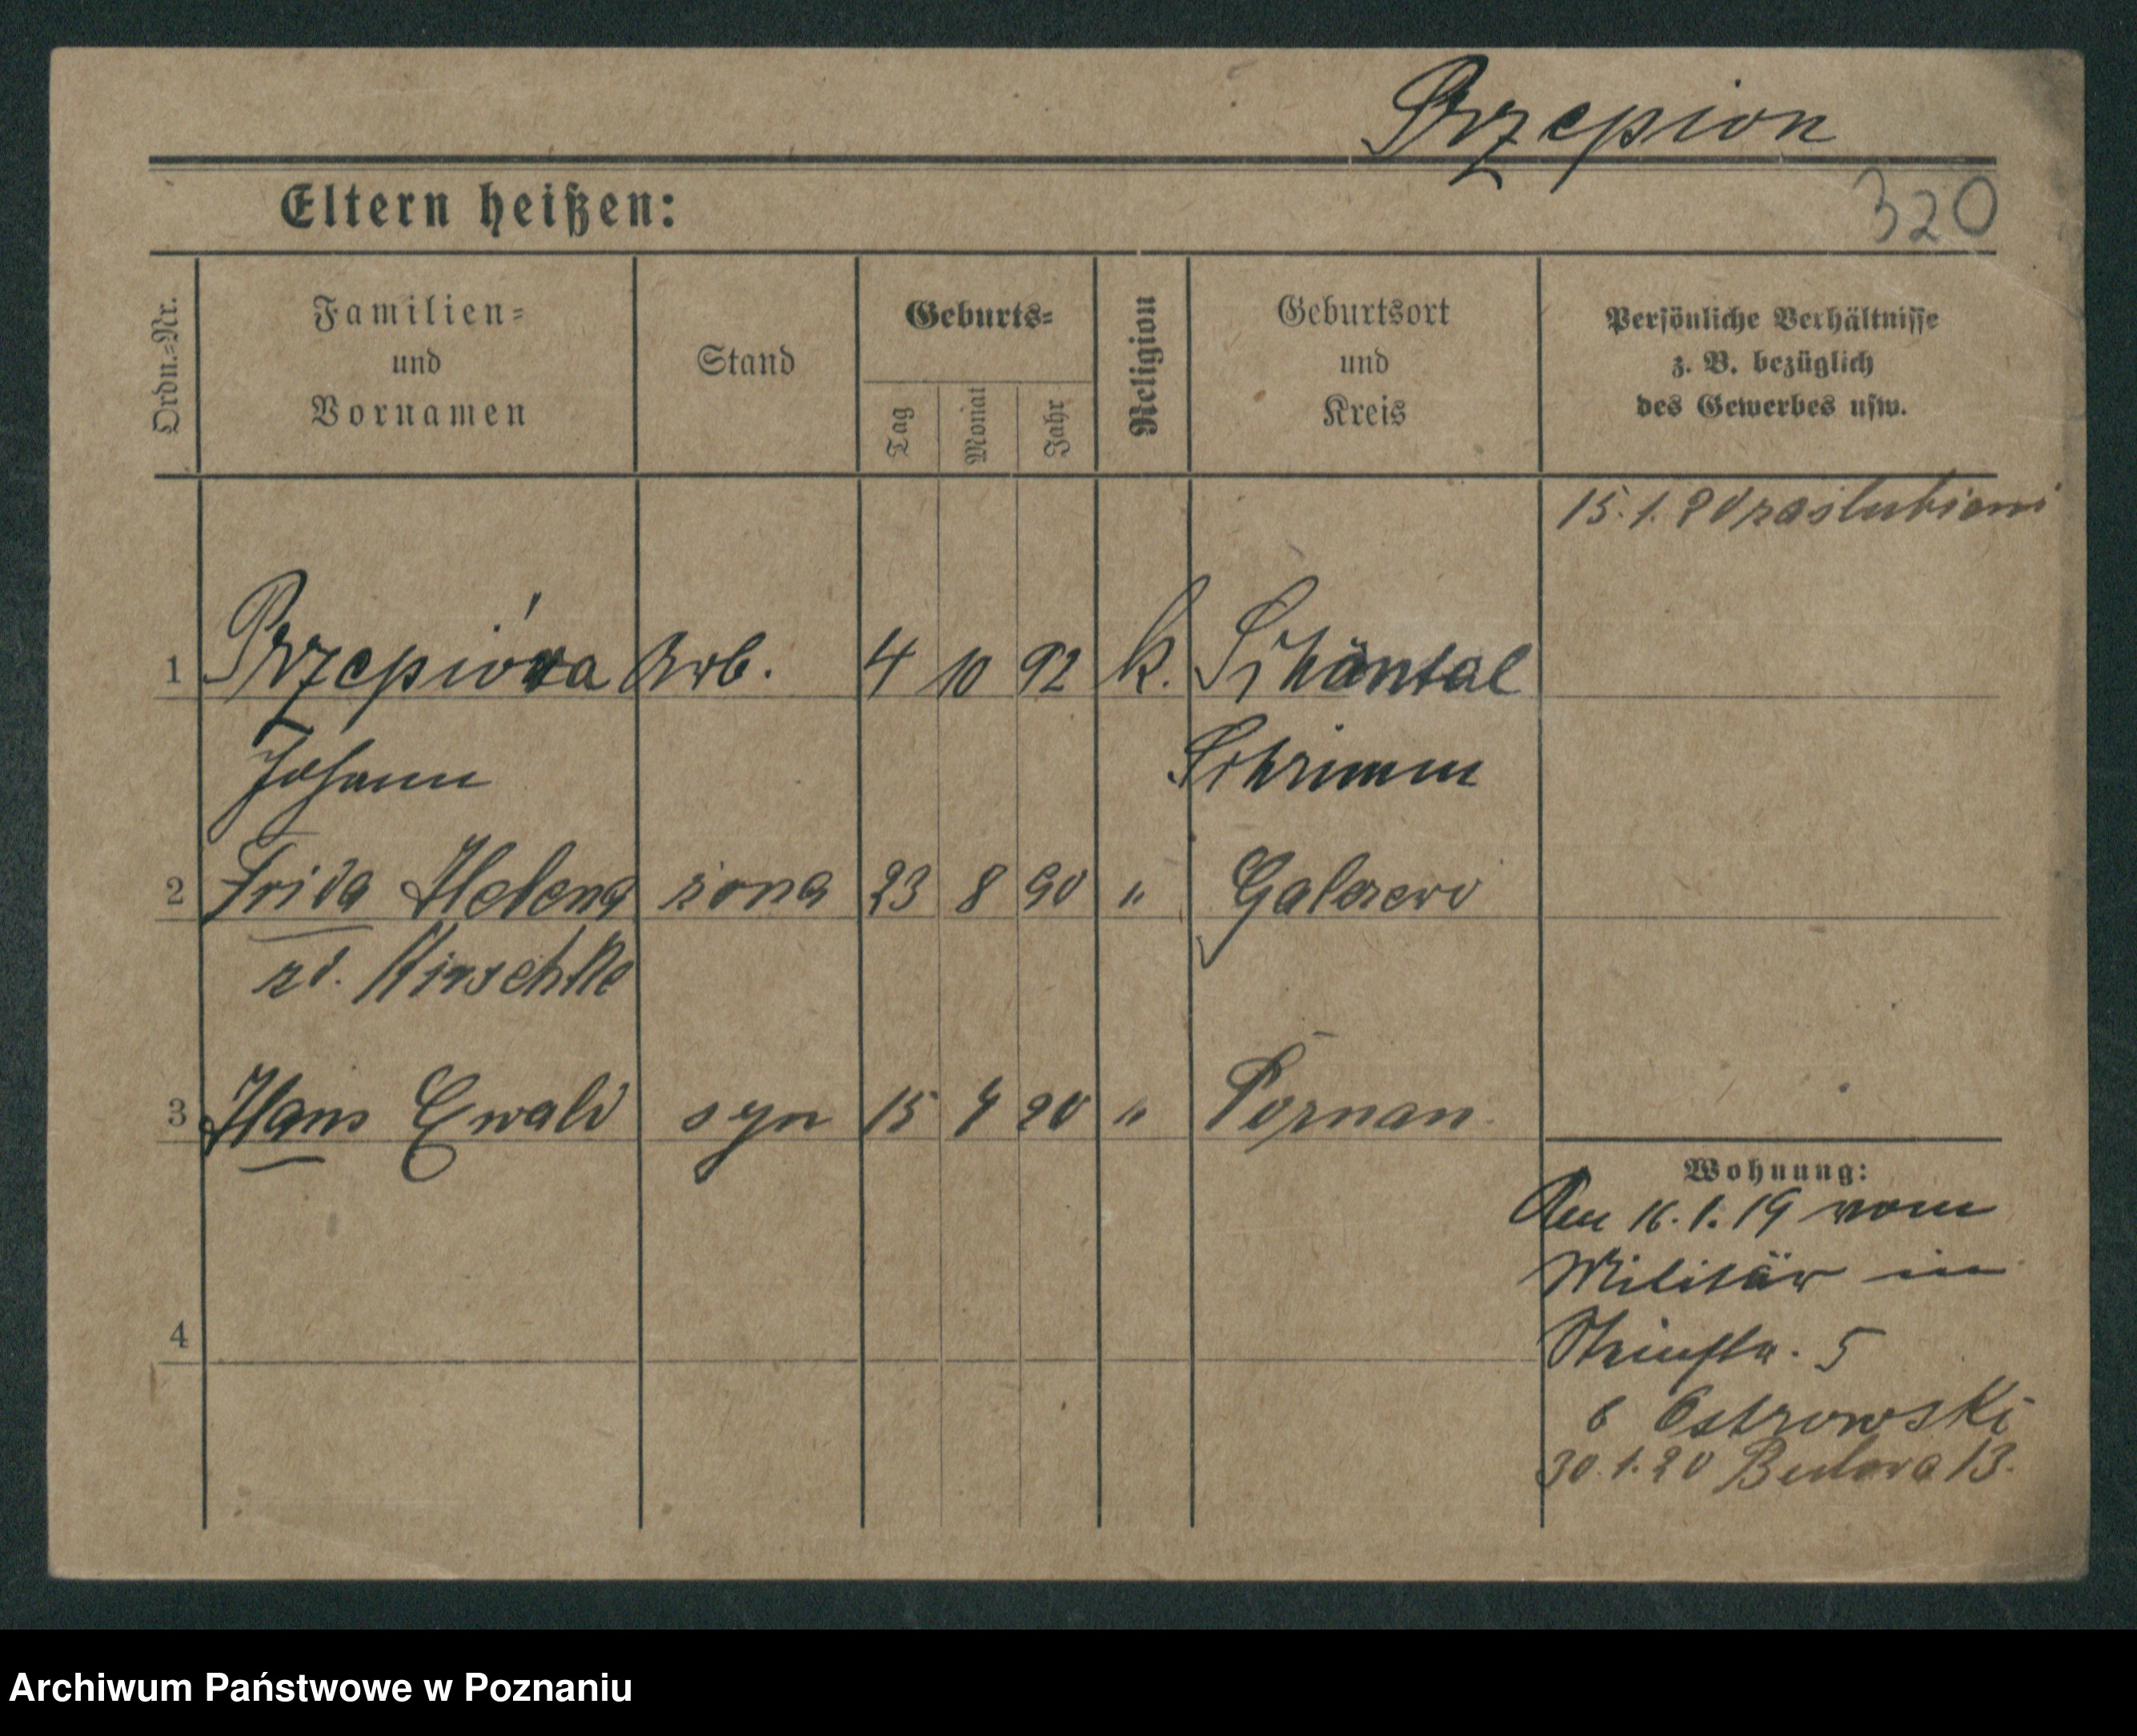 Przepion
Eltern heißen:
320
Ordn.=Nr.
Familien=
und
Vornamen
Stand
Geburts=
Tag
Monat
Jahr
Religion
Geburtsort
und
Kreis
Persönliche Verhältnisse
z. B. bezüglich
des Gewerbes usw.
15.1.20 zaślubieni
1 Przepióra Arb. 4 10 92 k. Schöntal
Johann Schrimm
2 Frida Helena żona 23 8 90 "
zd.
3 Hans Ewald syn 15 4 20 " Poznan
Wohnung:
Den 16.1.19 vom
Militär in
5
4
b Ostrowski
30.1.20 13.
Archiwum Państwowe w Poznaniu